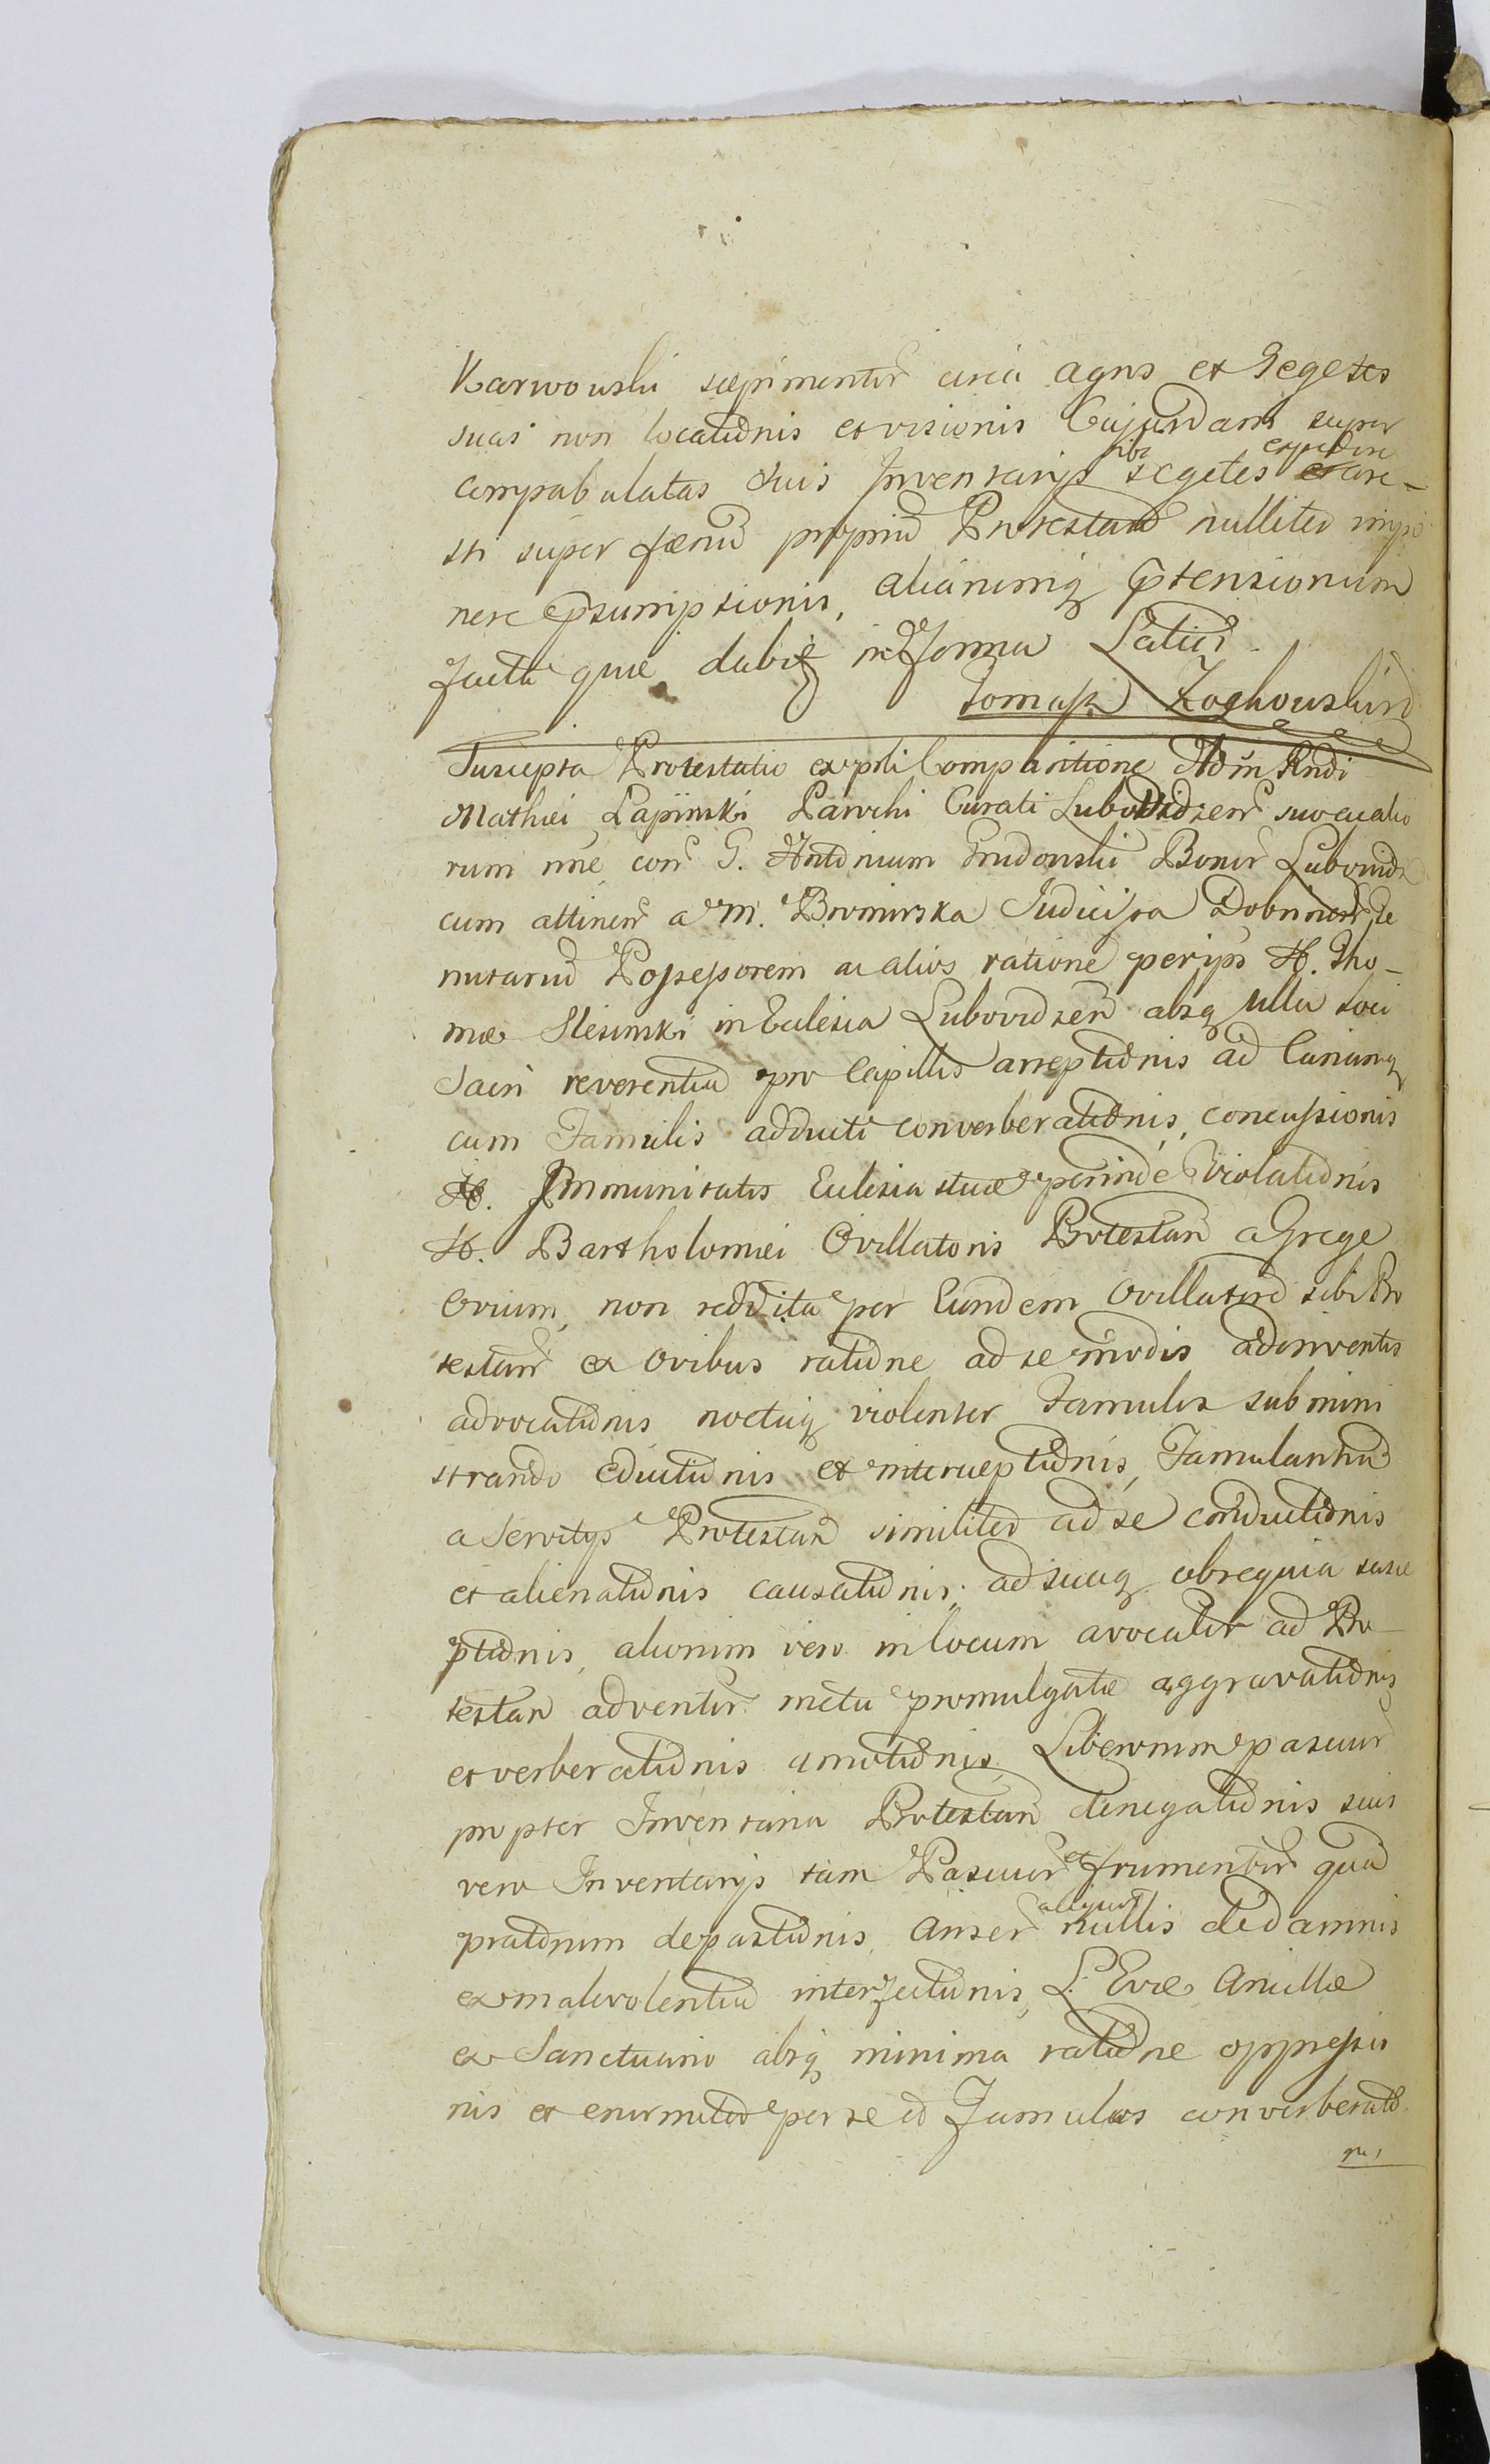 Karwowski sæpimentor circa agros et Segetes
suas non locationis et visionis Cujusdam super
compabulatas suis Inventarijs sibi segetes expedire
sti super fænu propriu Protestan nulliter impo
nere psumptionis, aliarumq ptensionum
facta quæ dabit in Forma Latiori
Tomasz Zochowski
Suscepta Protestatio ex psli Comparitione Adm Rndi
Mathæi Łapinski Parochi Curati Lubovidzen suo ac alio
rum nne con G. Antonium Grudowski Bonor Lubovidz
cum attinen a M. Bromirska Judicissa Dobrinen te
nutariu Possessorem ac alios ratione per ips H. Tho-
mæ Slesinski in Eclesia Lubovidzen absq ulla loci
Sacri reverentia pro Capillis arreptionis ad Curiamq
cum Famulis adducti converberationis, concussionis
H. Immunitatis Eclesiasticæ perinde Violationis
H. Bartholomæi Ovillatoris Protestan a Grege
Ovium, non reddita per Eundem Ovillatore sibi Pro
testan ex Ovibus ratione ad se modis adinventis
advocationis noctuq violenter Famulis submini
strando eductionis et interceptionis, Famulantiu
a Servitijs Protestan similiter ad se conductionis
et alienationis causationis, ad suaq obsequia susce
ptionis, aliorum vero in locum avocator ad Pro
testan adventur metu promulgatæ aggravationis
et verberationis amotionis Liberorum pascuor
propter Inventaria Protestan denegationis suis
vero Inventarijs tam Pascuor et frumentor qua
pratorum depastionis, Anser aliquot nullis de damnis
ex malevolentia interfectionis, L. Evæ Ancillæ
ex Sanctuario absq minima ratione oppressio
nis et enormiter per se et Famulos converberatio
nis